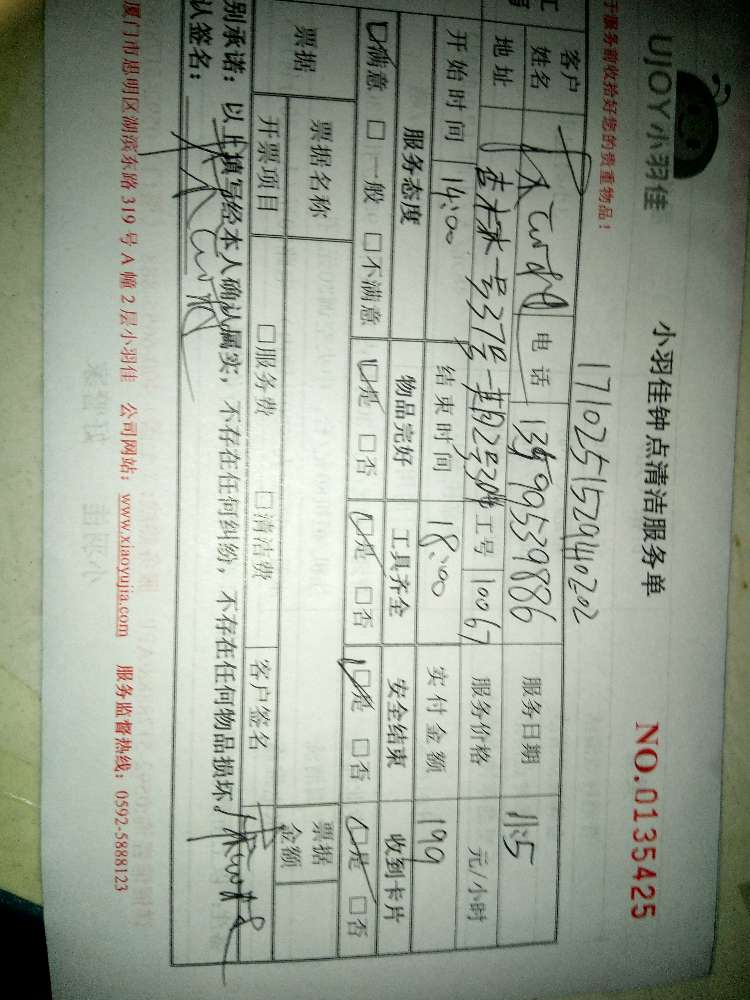 UJOY小羽佳
小羽佳钟点清洁服务单
NO.0135425
于服务前收拾好您的贵重物品!
171025152940202
客户
姓名
电话
13599539886
服务日期
11.5
地址
吉林一号37号
工号
10067
服务价格
元/小时
开始时间
14:00
结束时间
18:00
实付金额
199
服务态度
物品完好
工具齐全
安全结束
收到卡片
□满意 □一般 □不满意
□是 □否
□是 □否
□是 □否
□是 □否
票据
票据名称
票据
金额
开票项目
□服务费 □清洁费
客户签名
别承诺:以上填写经本人确认属实,不存在任何纠纷,不存在任何物品损坏。
认签名:
厦门市思明区湖滨东路319号A幢2层小羽佳 公司网站:www.xiaoyujia.com 服务监督热线:0592-5888123